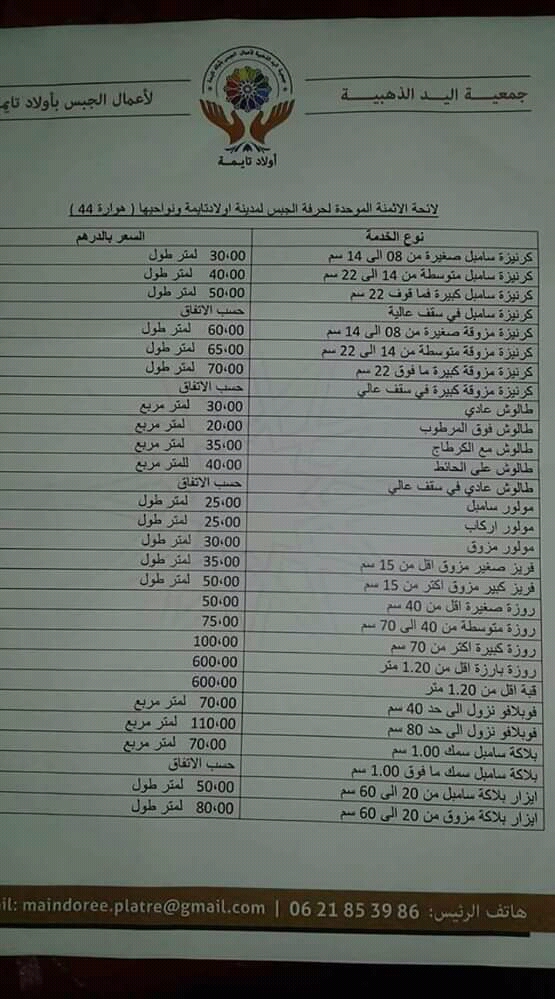 جمعيـــة اليـــد الذهبيـــة
لأعمال الجبس بأولاد تايمة
أولاد تايمـــة
لائحة الاثمنة الموحدة لحرفة الجبس لمدينة اولادتايمة ونواحيها ( هوارة 44 )
نوع الخدمة السعر بالدرهم
كرنيزة سامبل صغيرة من 08 الى 14 سم 30،00 لمتر طول
كرنيزة سامبل متوسطة من 14 الى 22 سم 40،00 لمتر طول
كرنيزة سامبل كبيرة فما قوف 22 سم 50،00 لمتر طول
كرنيزة سامبل في سقف عالية حسب الاتفاق
كرنيزة مزوقة صغيرة من 08 الى 14 سم 60،00 لمتر طول
كرنيزة مزوقة متوسطة من 14 الى 22 سم 65،00 لمتر طول
كرنيزة مزوقة كبيرة ما فوق 22 سم 70،00 لمتر طول
كرنيزة مزوقة كبيرة في سقف عالي حسب الاتفاق
طالوش عادي 30،00 لمتر مربع
طالوش فوق المرطوب 20،00 لمتر مربع
طالوش مع الكرطاج 35،00 لمتر مربع
طالوش على الحائط 40،00 للمتر مربع
طالوش عادي في سقف عالي حسب الاتفاق
مولور سامبل 25،00 لمتر طول
مولور اركاب 25،00 لمتر طول
مولور مزوق 30،00 لمتر طول
فريز صغير مزوق اقل من 15 سم 35،00 لمتر طول
فريز كبير مزوق اكثر من 15 سم 50،00 لمتر طول
روزة صغيرة اقل من 40 سم 50،00
روزة متوسطة من 40 الى 70 سم 75،00
روزة كبيرة اكثر من 70 سم 100،00
روزة بارزة اقل من 1.20 متر 600،00
قبة اقل من 1.20 متر 600،00
فوبلافو نزول الى حد 40 سم 70،00 لمتر مربع
فوبلافو نزول الى حد 80 سم 110،00 لمتر مربع
بلاكة سامبل سمك 1.00 سم 70،00 لمتر مربع
بلاكة سامبل سمك ما فوق 1.00 سم حسب الاتفاق
ايزار بلاكة سامبل من 20 الى 60 سم 50،00 لمتر طول
ايزار بلاكة مزوق من 20 الى 60 سم 80،00 لمتر طول
هاتف الرئيس: 06 21 85 39 86 | il: maindoree.platre@gmail.com